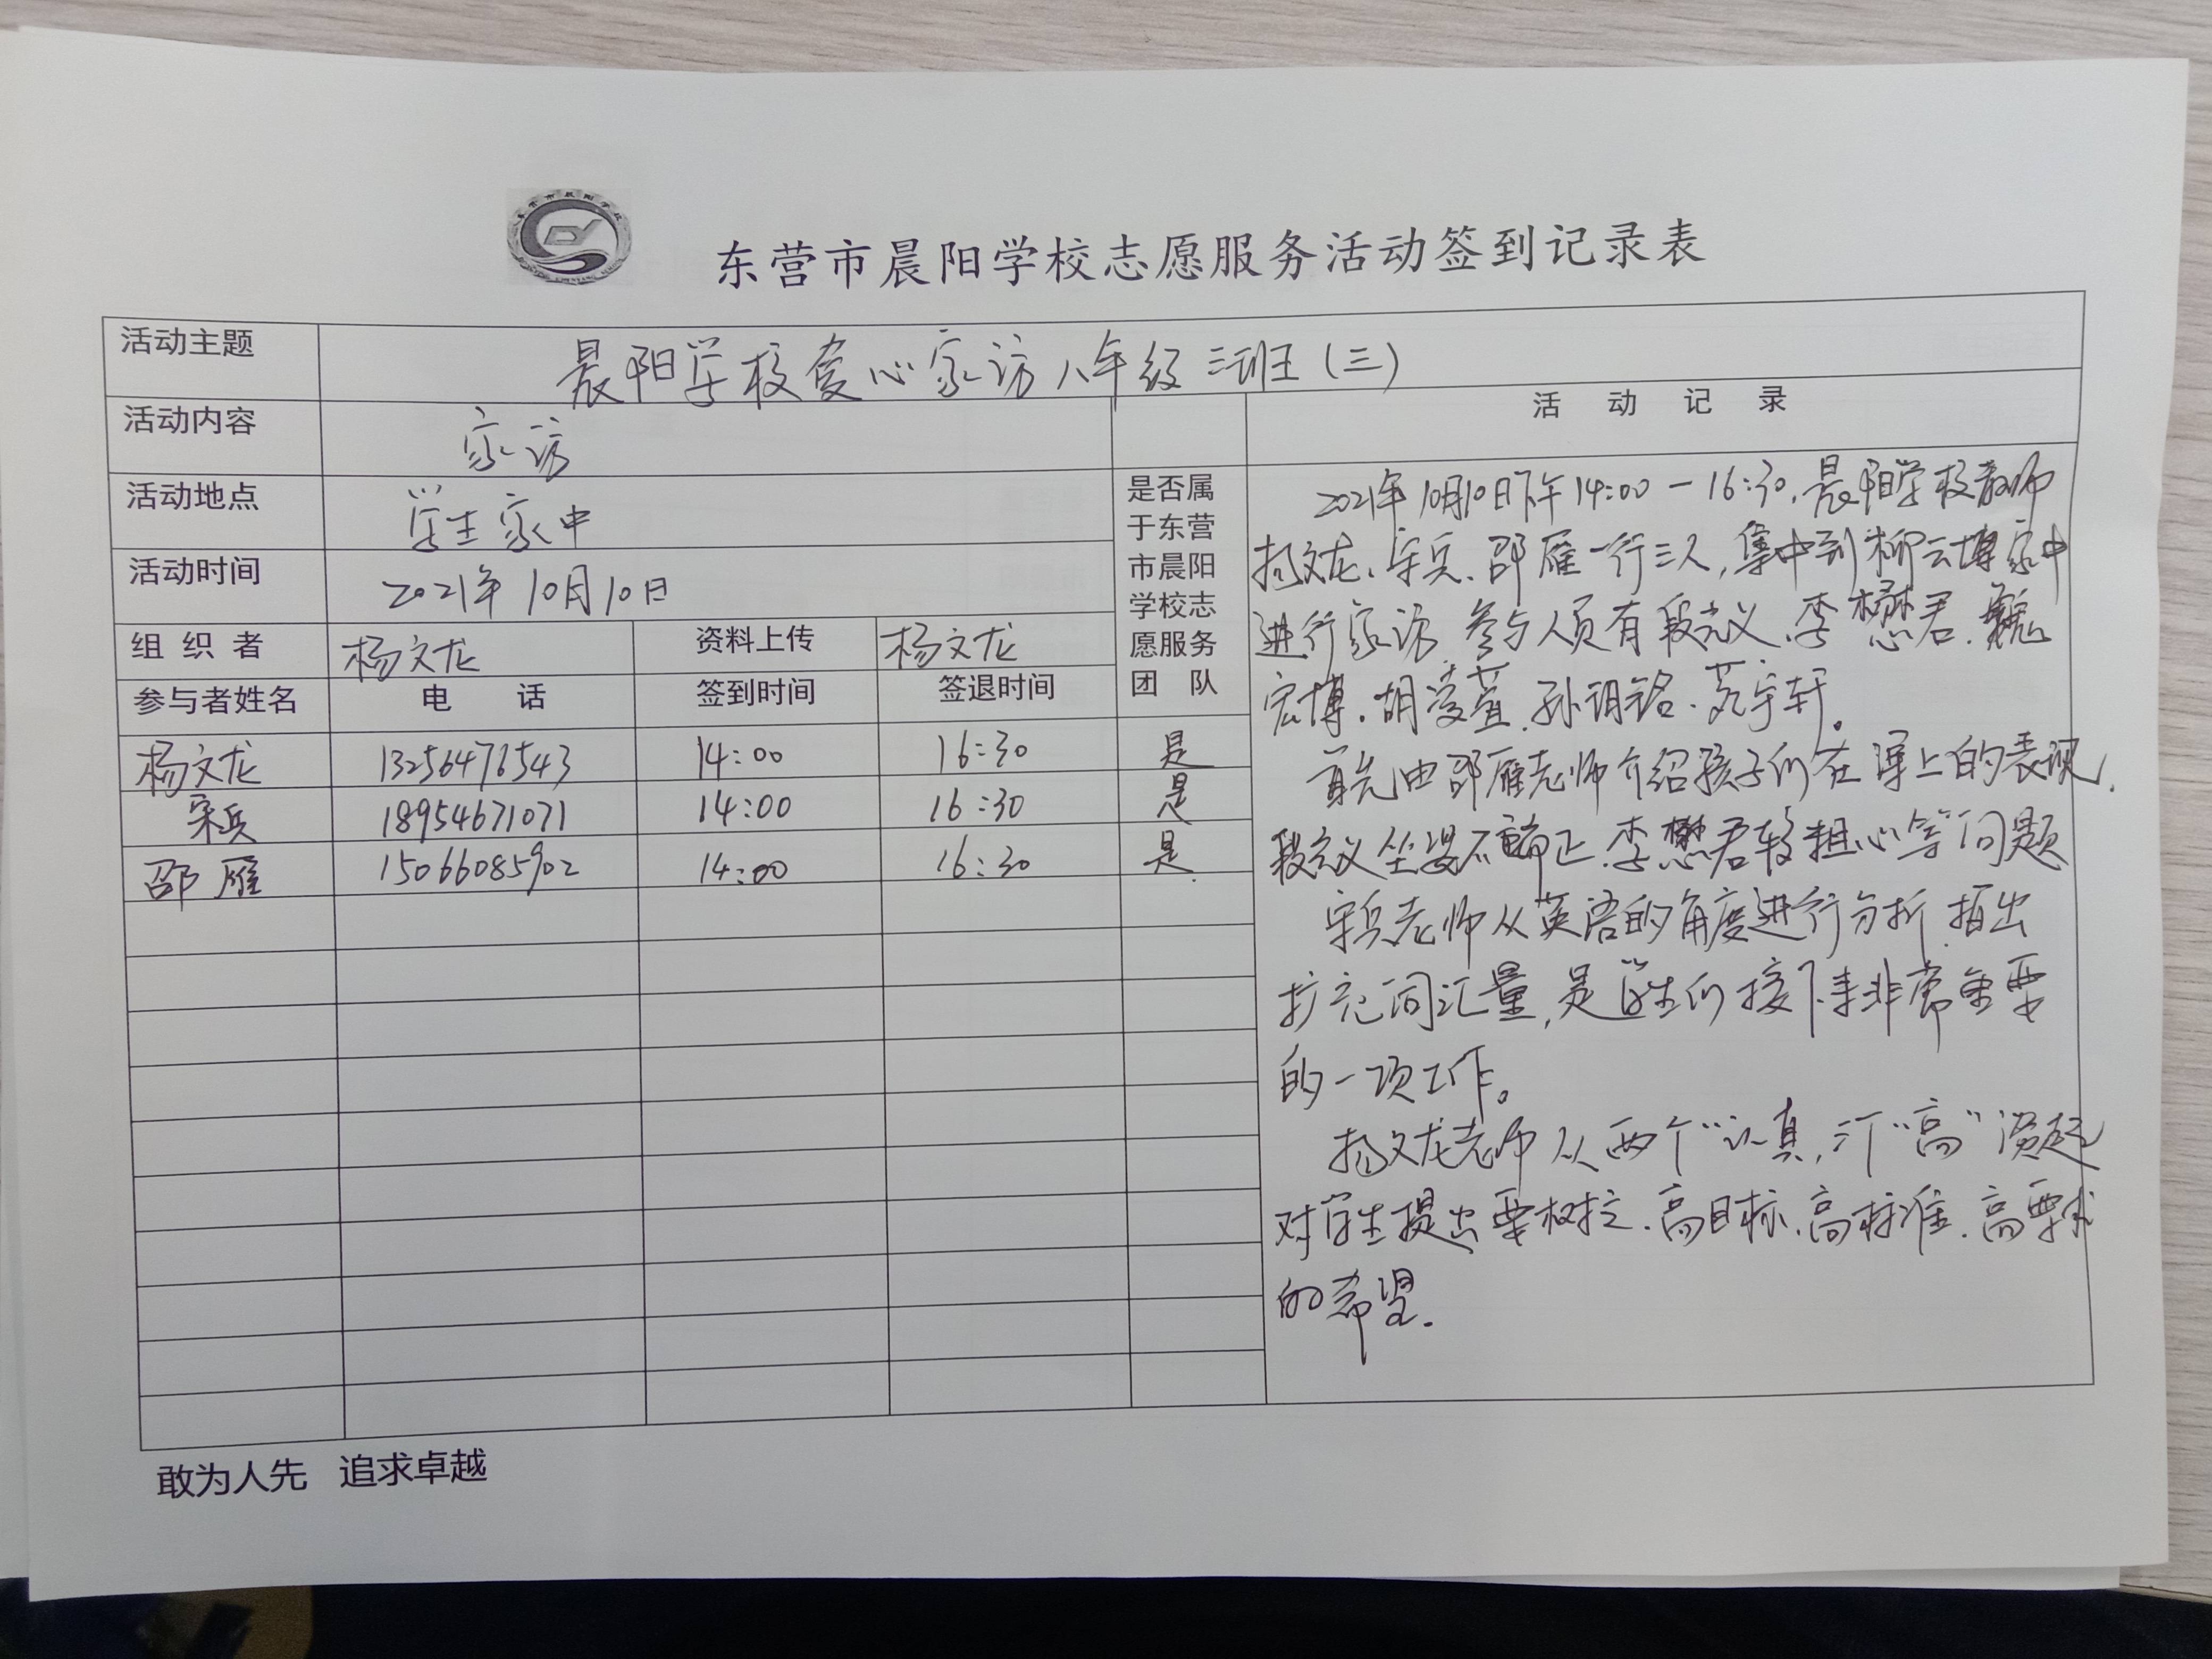 东营市晨阳学校
东营市晨阳学校志愿服务活动签到记录表
活动主题 晨阳学校爱心家访八年级三班(三)
活动内容 家访
活动地点 学生家中
活动时间 2021年10月10日
组织者 杨文龙 资料上传 杨文龙
参与者姓名 电 话 签到时间 签退时间
是否属
于东营
市晨阳
学校志
愿服务
团 队
杨文龙 13256476543 14:00 16:30 是
宋兵 18954671071 14:00 16:30 是
邵雁 15066085902 14:00 16:30 是
活 动 记 录
2021年10月10日下午14:00-16:30,晨阳学校教师
杨文龙、宋兵、邵雁一行三人,集中到柳云博家中
进行家访 参与人员有段义、李懋君、魏
宏博、胡凌萱、孙诩铭、苑宇轩。
首先由邵雁老师介绍孩子们在课上的表现,
段义坐姿不端正、李懋君较粗心等问题
宋兵老师从英语的角度进行分析,指出
扩充词汇量,是学生们接下来非常重要
的一项工作。
杨文龙老师从两个“认真,三个“高”谈起
对学生提出要树立、高目标、高标准、高要求
的希望.
敢为人先 追求卓越